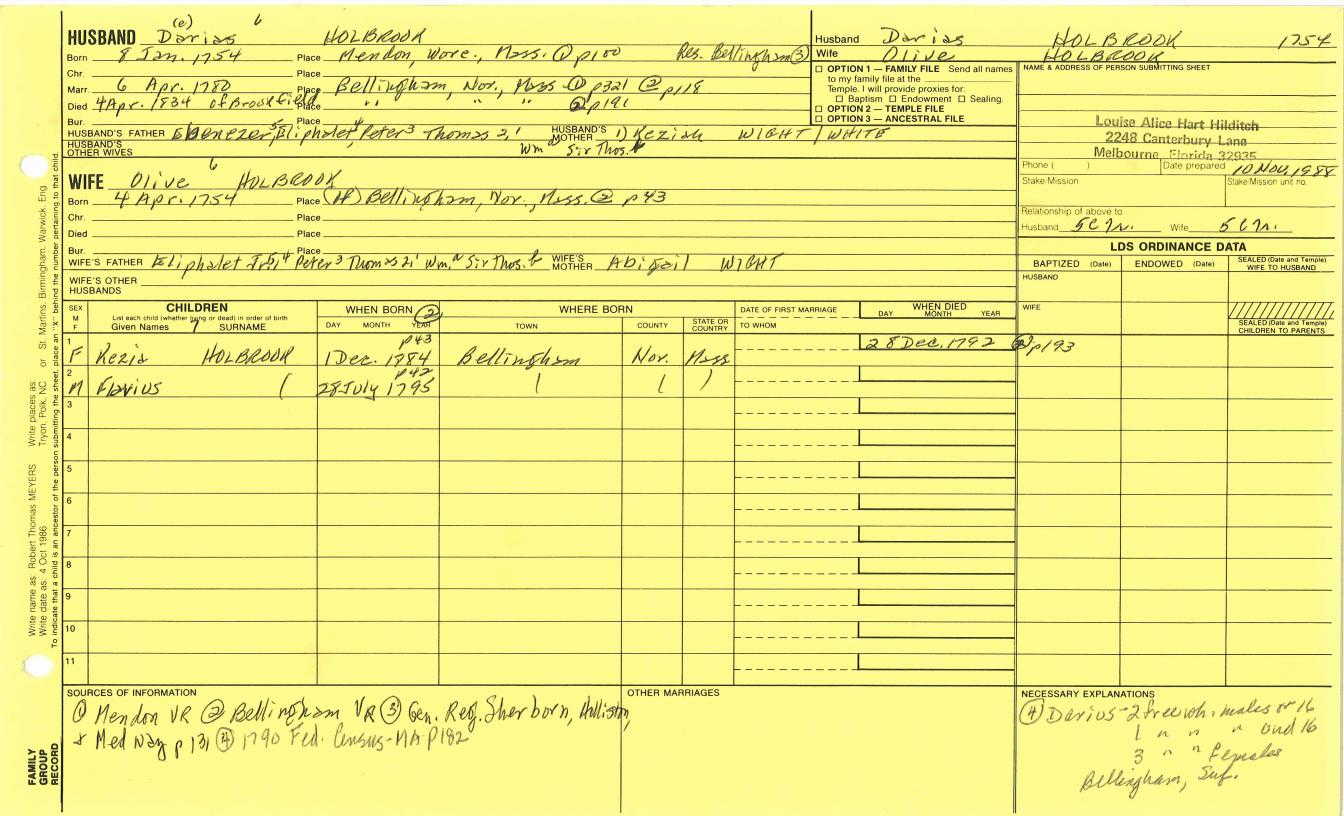 HUSBAND Darias (e) 6 HOLBROOK
Born 8 Jan. 1754 Place Mendon, Worc., Mass. ① p100 Res. Bellingham ③
Chr. Place
Marr. 6 Apr. 1780 Place Bellingham, Nor., Mass ① p321 ② p118
Died 4 Apr. 1834 of Brookfield Place " " " ② p191
Bur. Place
HUSBAND'S FATHER Ebenezer,5 Eliphalet,4 Peter3 Thomas 2,1 HUSBAND'S MOTHER 1) Keziah WIGHT / WHITE
HUSBAND'S OTHER WIVES Wm a Sir Thos. b
WIFE Olive 6 HOLBROOK
Born 4 Apr. 1754 Place (H) Bellingham, Nor., Mass. ② p43
Chr. Place
Died Place
Bur. Place
WIFE'S FATHER Eliphalet Jr5,4 Peter3 Thomas 2,1 Wm,a Sir Thos. b WIFE'S MOTHER Abigail WIGHT
WIFE'S OTHER HUSBANDS
Husband Darias HOLBROOK 1754
Wife Olive HOLBROOK
☐ OPTION 1 — FAMILY FILE Send all names
to my family file at the
Temple. I will provide proxies for:
☐ Baptism ☐ Endowment ☐ Sealing.
☐ OPTION 2 — TEMPLE FILE
☐ OPTION 3 — ANCESTRAL FILE
NAME & ADDRESS OF PERSON SUBMITTING SHEET
Louise Alice Hart Hilditch
2248 Canterbury Lane
Melbourne, Florida 32935
Phone ( ) Date prepared 10 Nov. 1988
Stake-Mission Stake-Mission unit no.
Relationship of above to
Husband 5C7r. Wife 5C7r.
LDS ORDINANCE DATA
BAPTIZED (Date) ENDOWED (Date) SEALED (Date and Temple) WIFE TO HUSBAND
HUSBAND
WIFE
SEALED (Date and Temple) CHILDREN TO PARENTS
SEX M F
CHILDREN
List each child (whether living or dead) in order of birth
Given Names 7 SURNAME
WHEN BORN ②
DAY MONTH YEAR
WHERE BORN
TOWN COUNTY STATE OR COUNTRY
DATE OF FIRST MARRIAGE
TO WHOM
WHEN DIED
DAY MONTH YEAR
1 F Kezia HOLBROOK 1 Dec. 1784 p43 Bellingham Nor. Mass 28 Dec. 1792 ② p193
2 M Flavius ( 28 July 1795 p42 ( ( )
3
4
5
6
7
8
9
10
11
SOURCES OF INFORMATION
① Mendon VR ② Bellingham VR ③ Gen. Reg. Sherborn, Holliston,
+ Medway p 131 ④ 1790 Fed. Census-MA P182
OTHER MARRIAGES
NECESSARY EXPLANATIONS
④ Darius-2 free wh. males or 16
1 " " " und 16
3 " " females
Bellingham, Suf.
FAMILY GROUP RECORD
Write name as: Robert Thomas MEYERS Write places as: Tryon, Polk, NC or St. Martins, Birmingham, Warwick, Eng.
Write date as: 4 Oct 1986
To indicate that a child is an ancestor of the person submitting the sheet, place an "X" behind the number pertaining to that child.